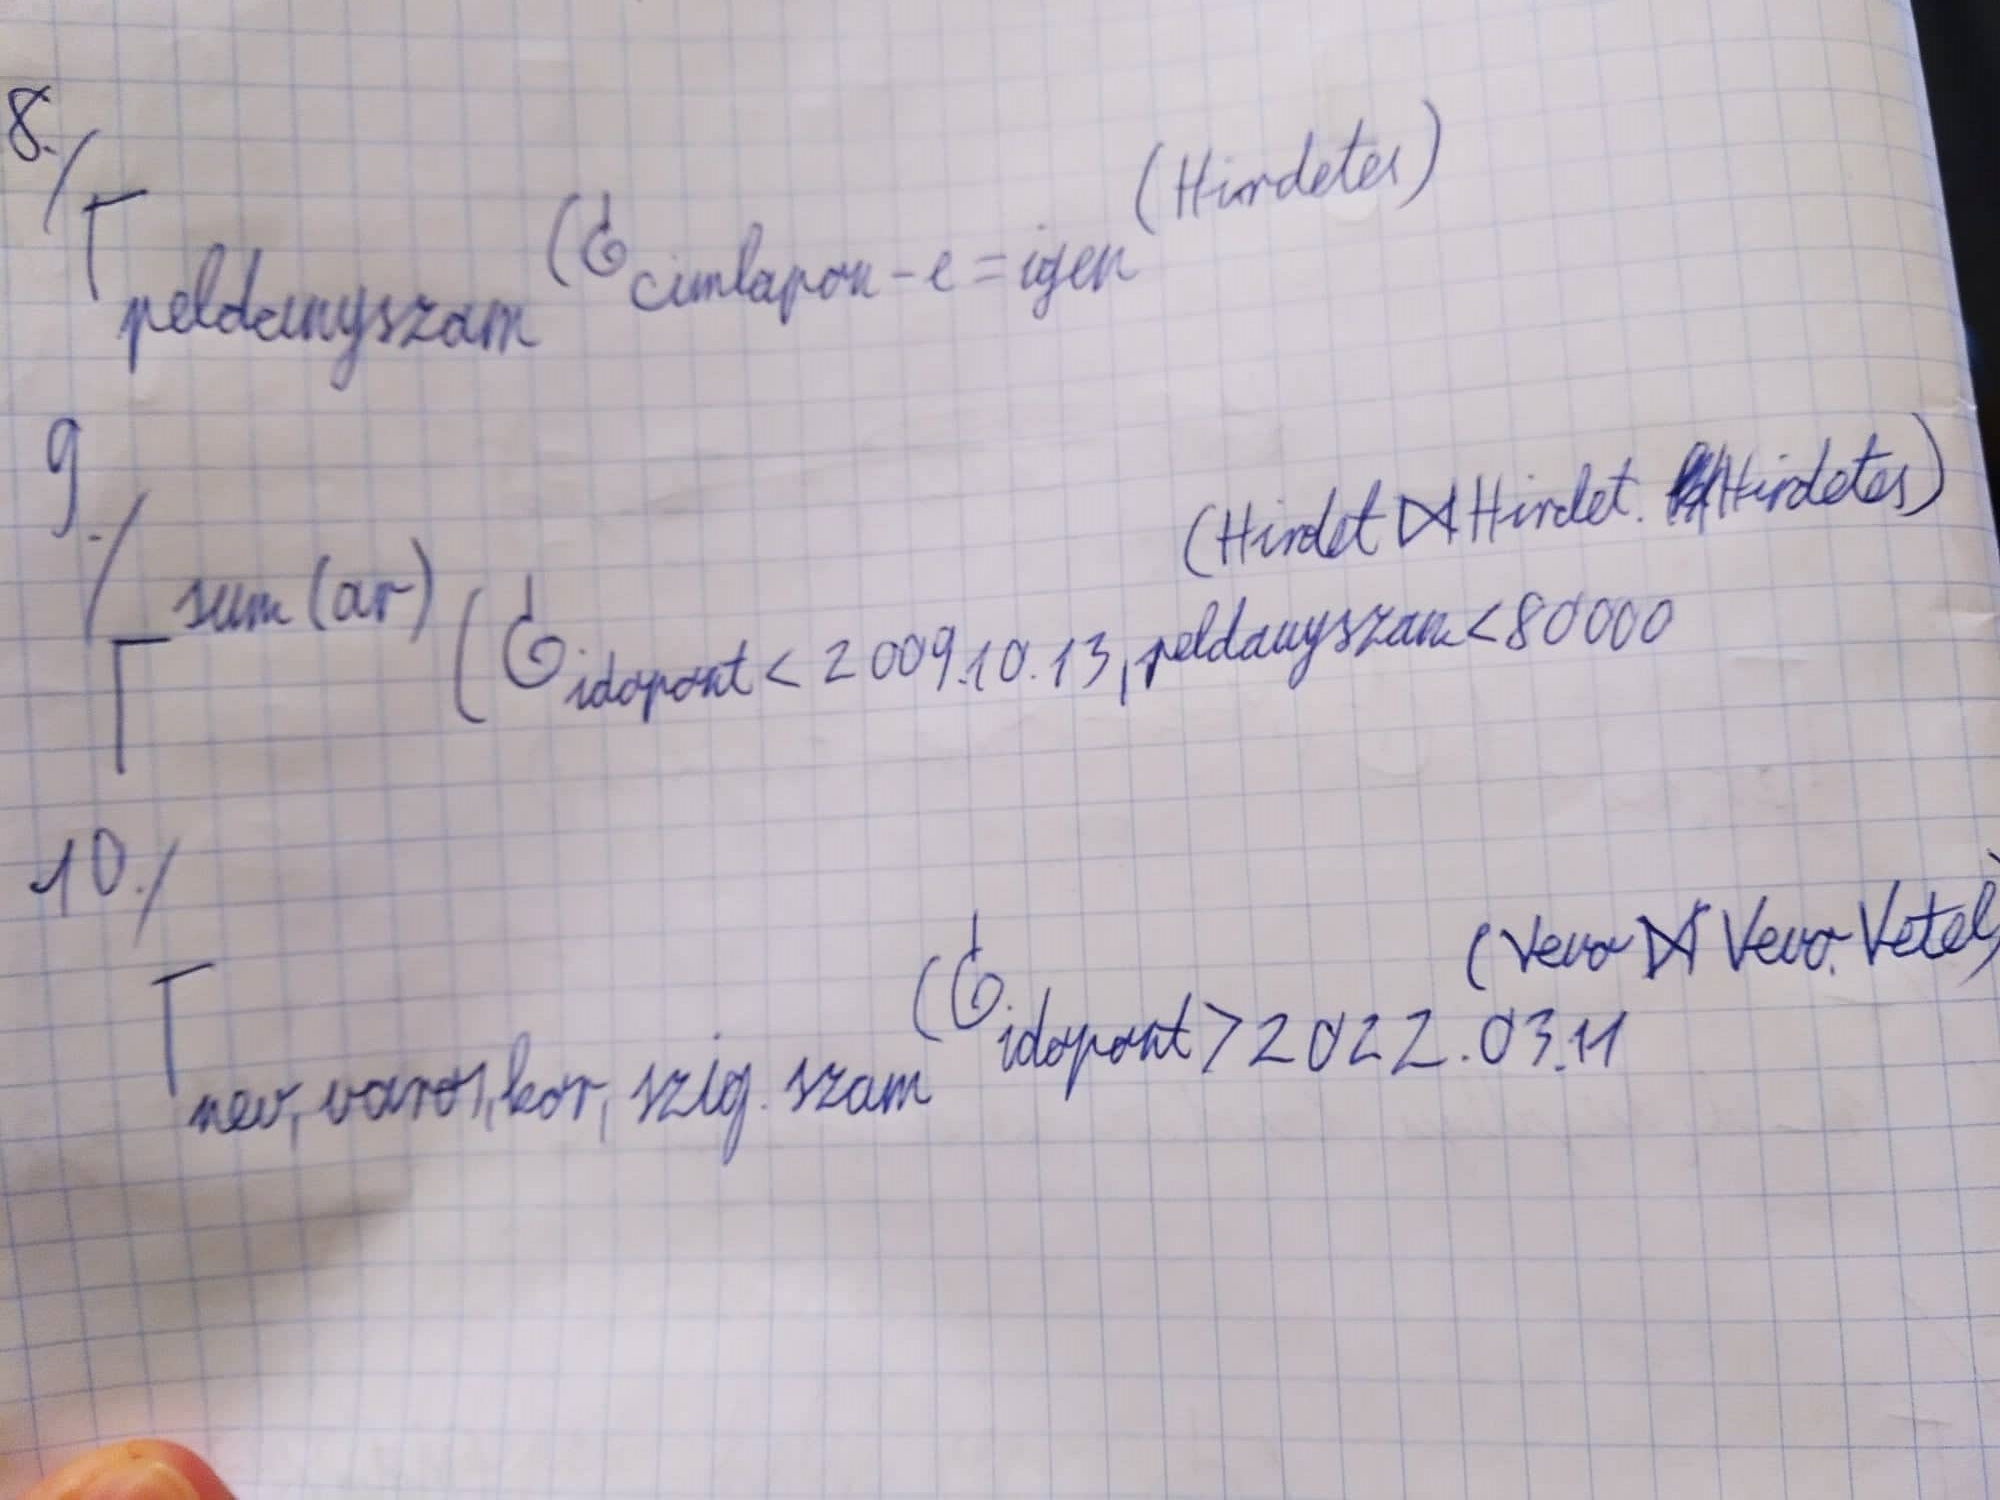 8./
Γ peldanyszam (σ cimlapon-e=igen (Hirdetes)
9./
Γ sum(ar) (σ idopont<2009.10.13, peldanyszam<80000 (Hirdet⋈Hirdet. Hirdetes)
10./
Γ nev, varos, kor, szig. szam (σ idopont>2022.03.11 (Vevo⋈Vevo. Vetel)